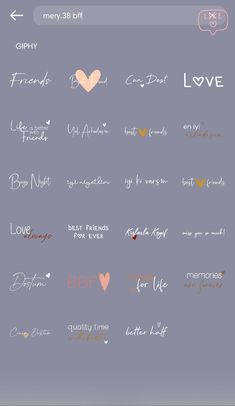 mery.38 bff
LIKE
GIPHY
Friends
Can Dost
LOVE
Life is better
with
Friends
Yol Arkadaşım
best friends
en iyi
arkadaşım
Boys Night
iyi niyetlim
iyi ki varsın
best friends
Love
always
BEST FRIENDS
FOR EVER
Kızlarla Keyif
miss you so much!
Dostum
BFF
for life
memories
are forever
Canım Dostum
quality time
with besties
better half